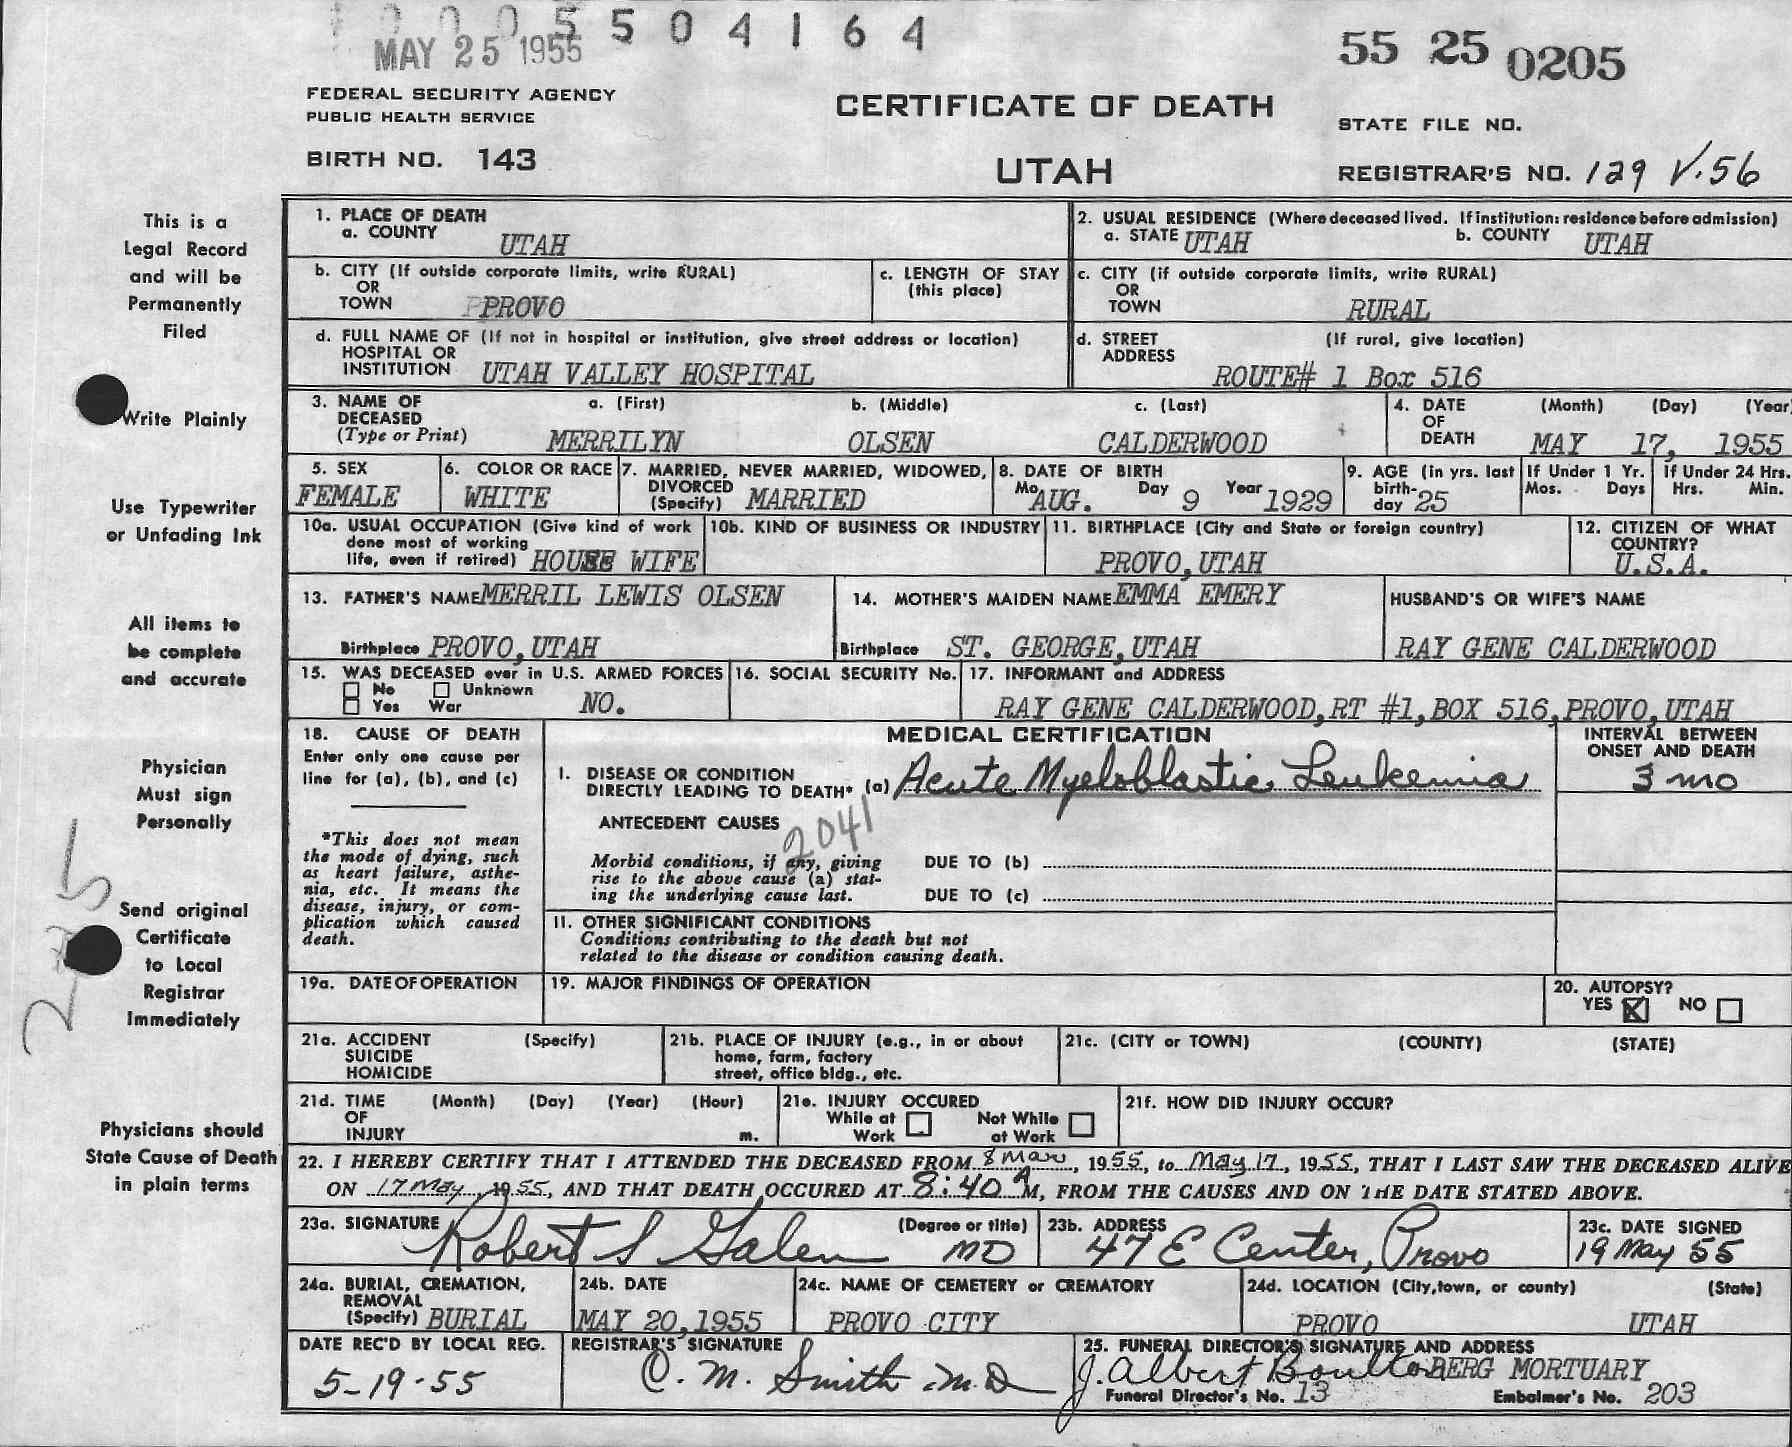 5504164
MAY 25 1955
55 25 0205
FEDERAL SECURITY AGENCY
PUBLIC HEALTH SERVICE
CERTIFICATE OF DEATH
STATE FILE NO.
BIRTH NO. 143
UTAH
REGISTRAR'S NO. 129 V.56
This is a
Legal Record
and will be
Permanently
Filed
Write Plainly
Use Typewriter
or Unfading Ink
All items to
be complete
and accurate
Physician
Must sign
Personally
Send original
Certificate
to Local
Registrar
Immediately
Physicians should
State Cause of Death
in plain terms
1. PLACE OF DEATH
a. COUNTY UTAH
2. USUAL RESIDENCE (Where deceased lived. If institution: residence before admission)
a. STATE UTAH b. COUNTY UTAH
b. CITY (If outside corporate limits, write RURAL)
OR
TOWN PROVO
c. LENGTH OF STAY
(this place)
c. CITY (if outside corporate limits, write RURAL)
OR
TOWN RURAL
d. FULL NAME OF (If not in hospital or institution, give street address or location)
HOSPITAL OR
INSTITUTION UTAH VALLEY HOSPITAL
d. STREET (If rural, give location)
ADDRESS ROUTE# 1 Box 516
3. NAME OF a. (First) b. (Middle) c. (Last)
DECEASED
(Type or Print) MERRILYN OLSEN CALDERWOOD
4. DATE (Month) (Day) (Year)
OF
DEATH MAY 17, 1955
5. SEX
FEMALE
6. COLOR OR RACE
WHITE
7. MARRIED, NEVER MARRIED, WIDOWED,
DIVORCED
(Specify) MARRIED
8. DATE OF BIRTH
Mo. AUG. Day 9 Year 1929
9. AGE (in yrs. last
birth-
day 25
If Under 1 Yr.
Mos. Days
If Under 24 Hrs.
Hrs. Min.
10a. USUAL OCCUPATION (Give kind of work
done most of working
life, even if retired) HOUSE WIFE
10b. KIND OF BUSINESS OR INDUSTRY
11. BIRTHPLACE (City and State or foreign country)
PROVO, UTAH
12. CITIZEN OF WHAT
COUNTRY?
U.S.A.
13. FATHER'S NAME MERRIL LEWIS OLSEN
Birthplace PROVO, UTAH
14. MOTHER'S MAIDEN NAME EMMA EMERY
Birthplace ST. GEORGE, UTAH
HUSBAND'S OR WIFE'S NAME
RAY GENE CALDERWOOD
15. WAS DECEASED ever in U.S. ARMED FORCES
No Unknown
Yes War NO.
16. SOCIAL SECURITY No.
17. INFORMANT and ADDRESS
RAY GENE CALDERWOOD, RT #1, BOX 516, PROVO, UTAH
18. CAUSE OF DEATH
Enter only one cause per
line for (a), (b), and (c)
*This does not mean
the mode of dying, such
as heart failure, asthe-
nia, etc. It means the
disease, injury, or com-
plication which caused
death.
MEDICAL CERTIFICATION
INTERVAL BETWEEN
ONSET AND DEATH
I. DISEASE OR CONDITION
DIRECTLY LEADING TO DEATH* (a) Acute Myeloblastic Leukemia 3 mo
ANTECEDENT CAUSES
2041
Morbid conditions, if any, giving
rise to the above cause (a) stat-
ing the underlying cause last.
DUE TO (b)
DUE TO (c)
II. OTHER SIGNIFICANT CONDITIONS
Conditions contributing to the death but not
related to the disease or condition causing death.
19a. DATE OF OPERATION
19. MAJOR FINDINGS OF OPERATION
20. AUTOPSY?
YES NO
21a. ACCIDENT (Specify)
SUICIDE
HOMICIDE
21b. PLACE OF INJURY (e.g., in or about
home, farm, factory
street, office bldg., etc.
21c. (CITY or TOWN) (COUNTY) (STATE)
21d. TIME (Month) (Day) (Year) (Hour)
OF
INJURY m.
21e. INJURY OCCURED
While at Work Not While at Work
21f. HOW DID INJURY OCCUR?
22. I HEREBY CERTIFY THAT I ATTENDED THE DECEASED FROM 8 Mar, 1955, to May 17, 1955, THAT I LAST SAW THE DECEASED ALIVE
ON 17 May, 1955, AND THAT DEATH OCCURED AT 8:40 AM, FROM THE CAUSES AND ON THE DATE STATED ABOVE.
23a. SIGNATURE (Degree or title)
Robert S Galen MD
23b. ADDRESS
47 E Center, Provo
23c. DATE SIGNED
19 May 55
24a. BURIAL, CREMATION,
REMOVAL
(Specify) BURIAL
24b. DATE
MAY 20, 1955
24c. NAME OF CEMETERY or CREMATORY
PROVO CITY
24d. LOCATION (City, town, or county) (State)
PROVO UTAH
DATE REC'D BY LOCAL REG.
5-19-55
REGISTRAR'S SIGNATURE
C. M. Smith M.D
25. FUNERAL DIRECTOR'S SIGNATURE AND ADDRESS
J. Albert BERG MORTUARY
Funeral Director's No. 13 Embalmer's No. 203